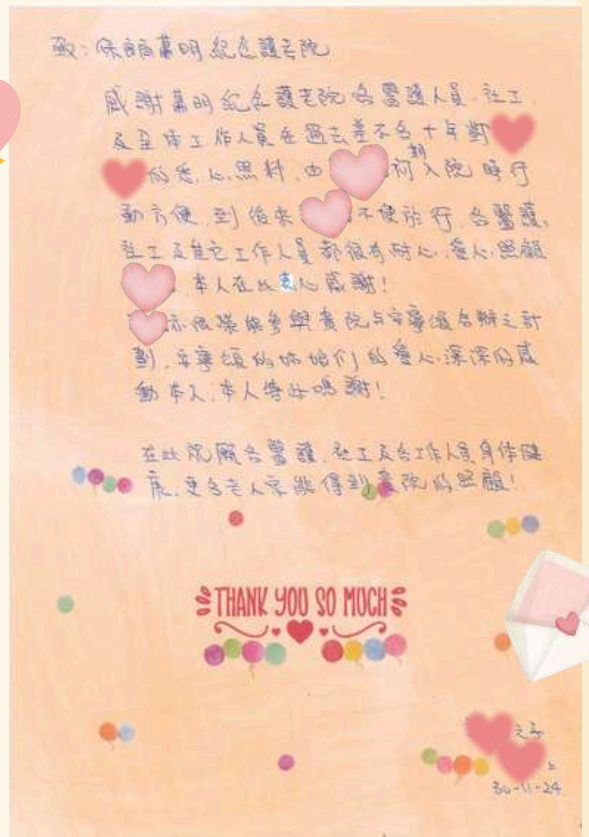 致：保良局蕭明紀念護老院
感謝蕭明紀念護老院各醫護人員、社工
及全体工作人員在過去差不多十年對
的悉心照料，由 初期入院時行
動方便，到後來 不便於行，各醫護、
社工及其它工作人員都很有耐心、愛心照顧
本人在此衷心感謝！
亦很榮能參與貴院与安寧頌合辦之計
劃，安寧頌的姑娘们的愛心深深的感
動本人，本人特此鳴謝！
在此祝願各醫護、社工及各工作人員身体健
康，更多老人家能得到貴院的照顧！
THANK YOU SO MUCH
之子
上
30-11-24